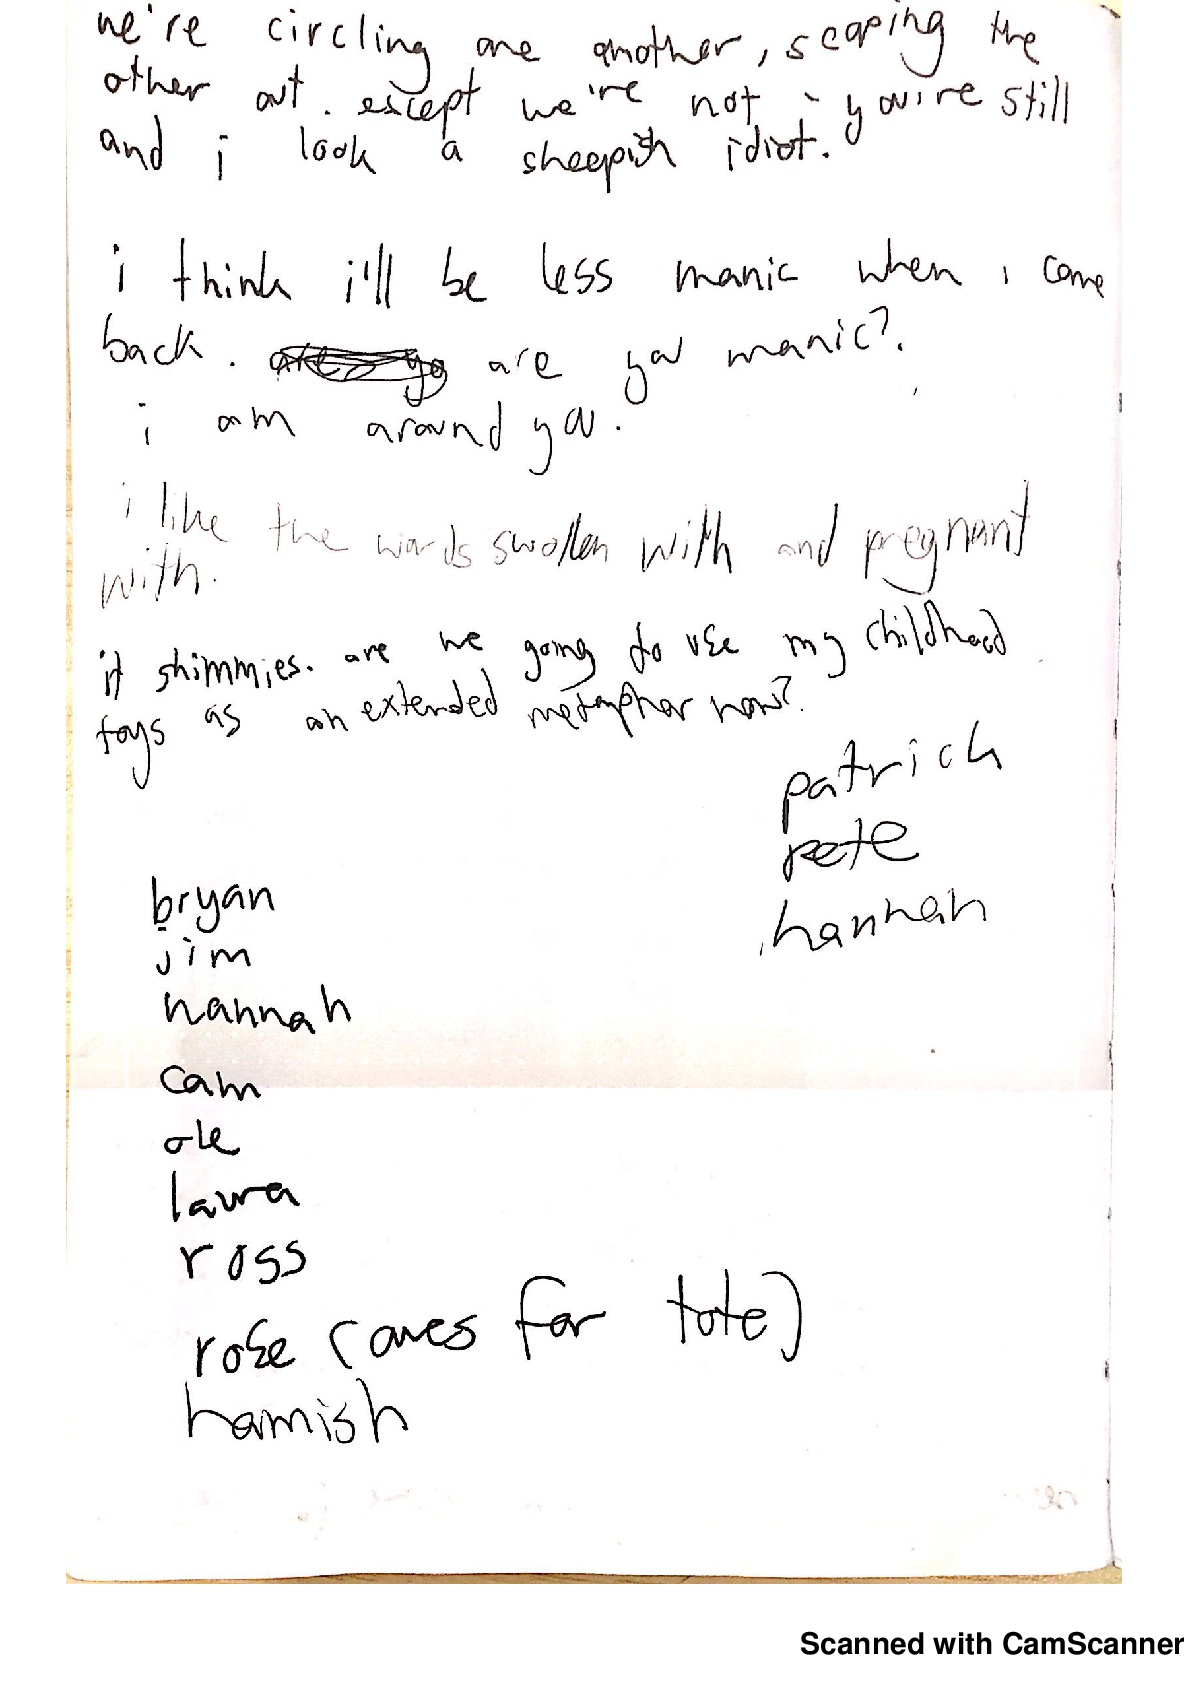 we're circling one another, scoping the
other out. except we're not - you're still
and i look a sheepish idiot.
i think i'll be less manic when i come
back. are you manic?.
i am around you.
i like the words swollen with and pregnant
with.
it shimmies. are we going to use my childhood
toys as an extended metaphor now?
patrick
pete
hannah
bryan
jim
hannah
cam
ole
laura
ross
rose (owes for tote)
hamish
Scanned with CamScanner